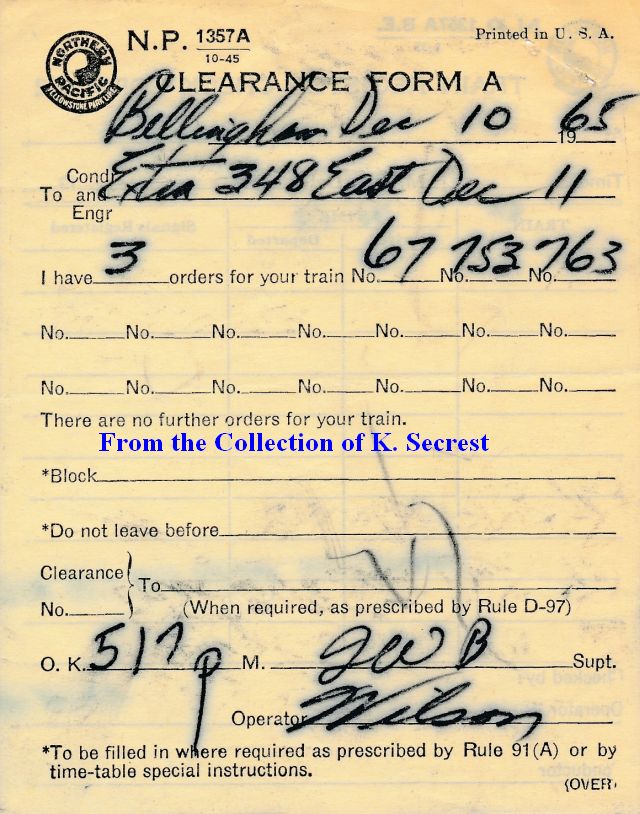 NORTHERN PACIFIC
YELLOWSTONE PARK LINE
N.P. 1357A
10-45
Printed in U. S. A.
CLEARANCE FORM A
Bellingham Dec 10 1965
Condr
To and Extra 348 East Dec 11
Engr
I have 3 orders for your train No. 67 No. 753 No. 763
No. No. No. No. No. No. No.
No. No. No. No. No. No. No.
There are no further orders for your train.
From the Collection of K. Secrest
*Block
*Do not leave before
Clearance } To
No. (When required, as prescribed by Rule D-97)
O. K. 517 p M. JWB Supt.
Operator Wilson
*To be filled in where required as prescribed by Rule 91(A) or by
time-table special instructions.
(OVER)